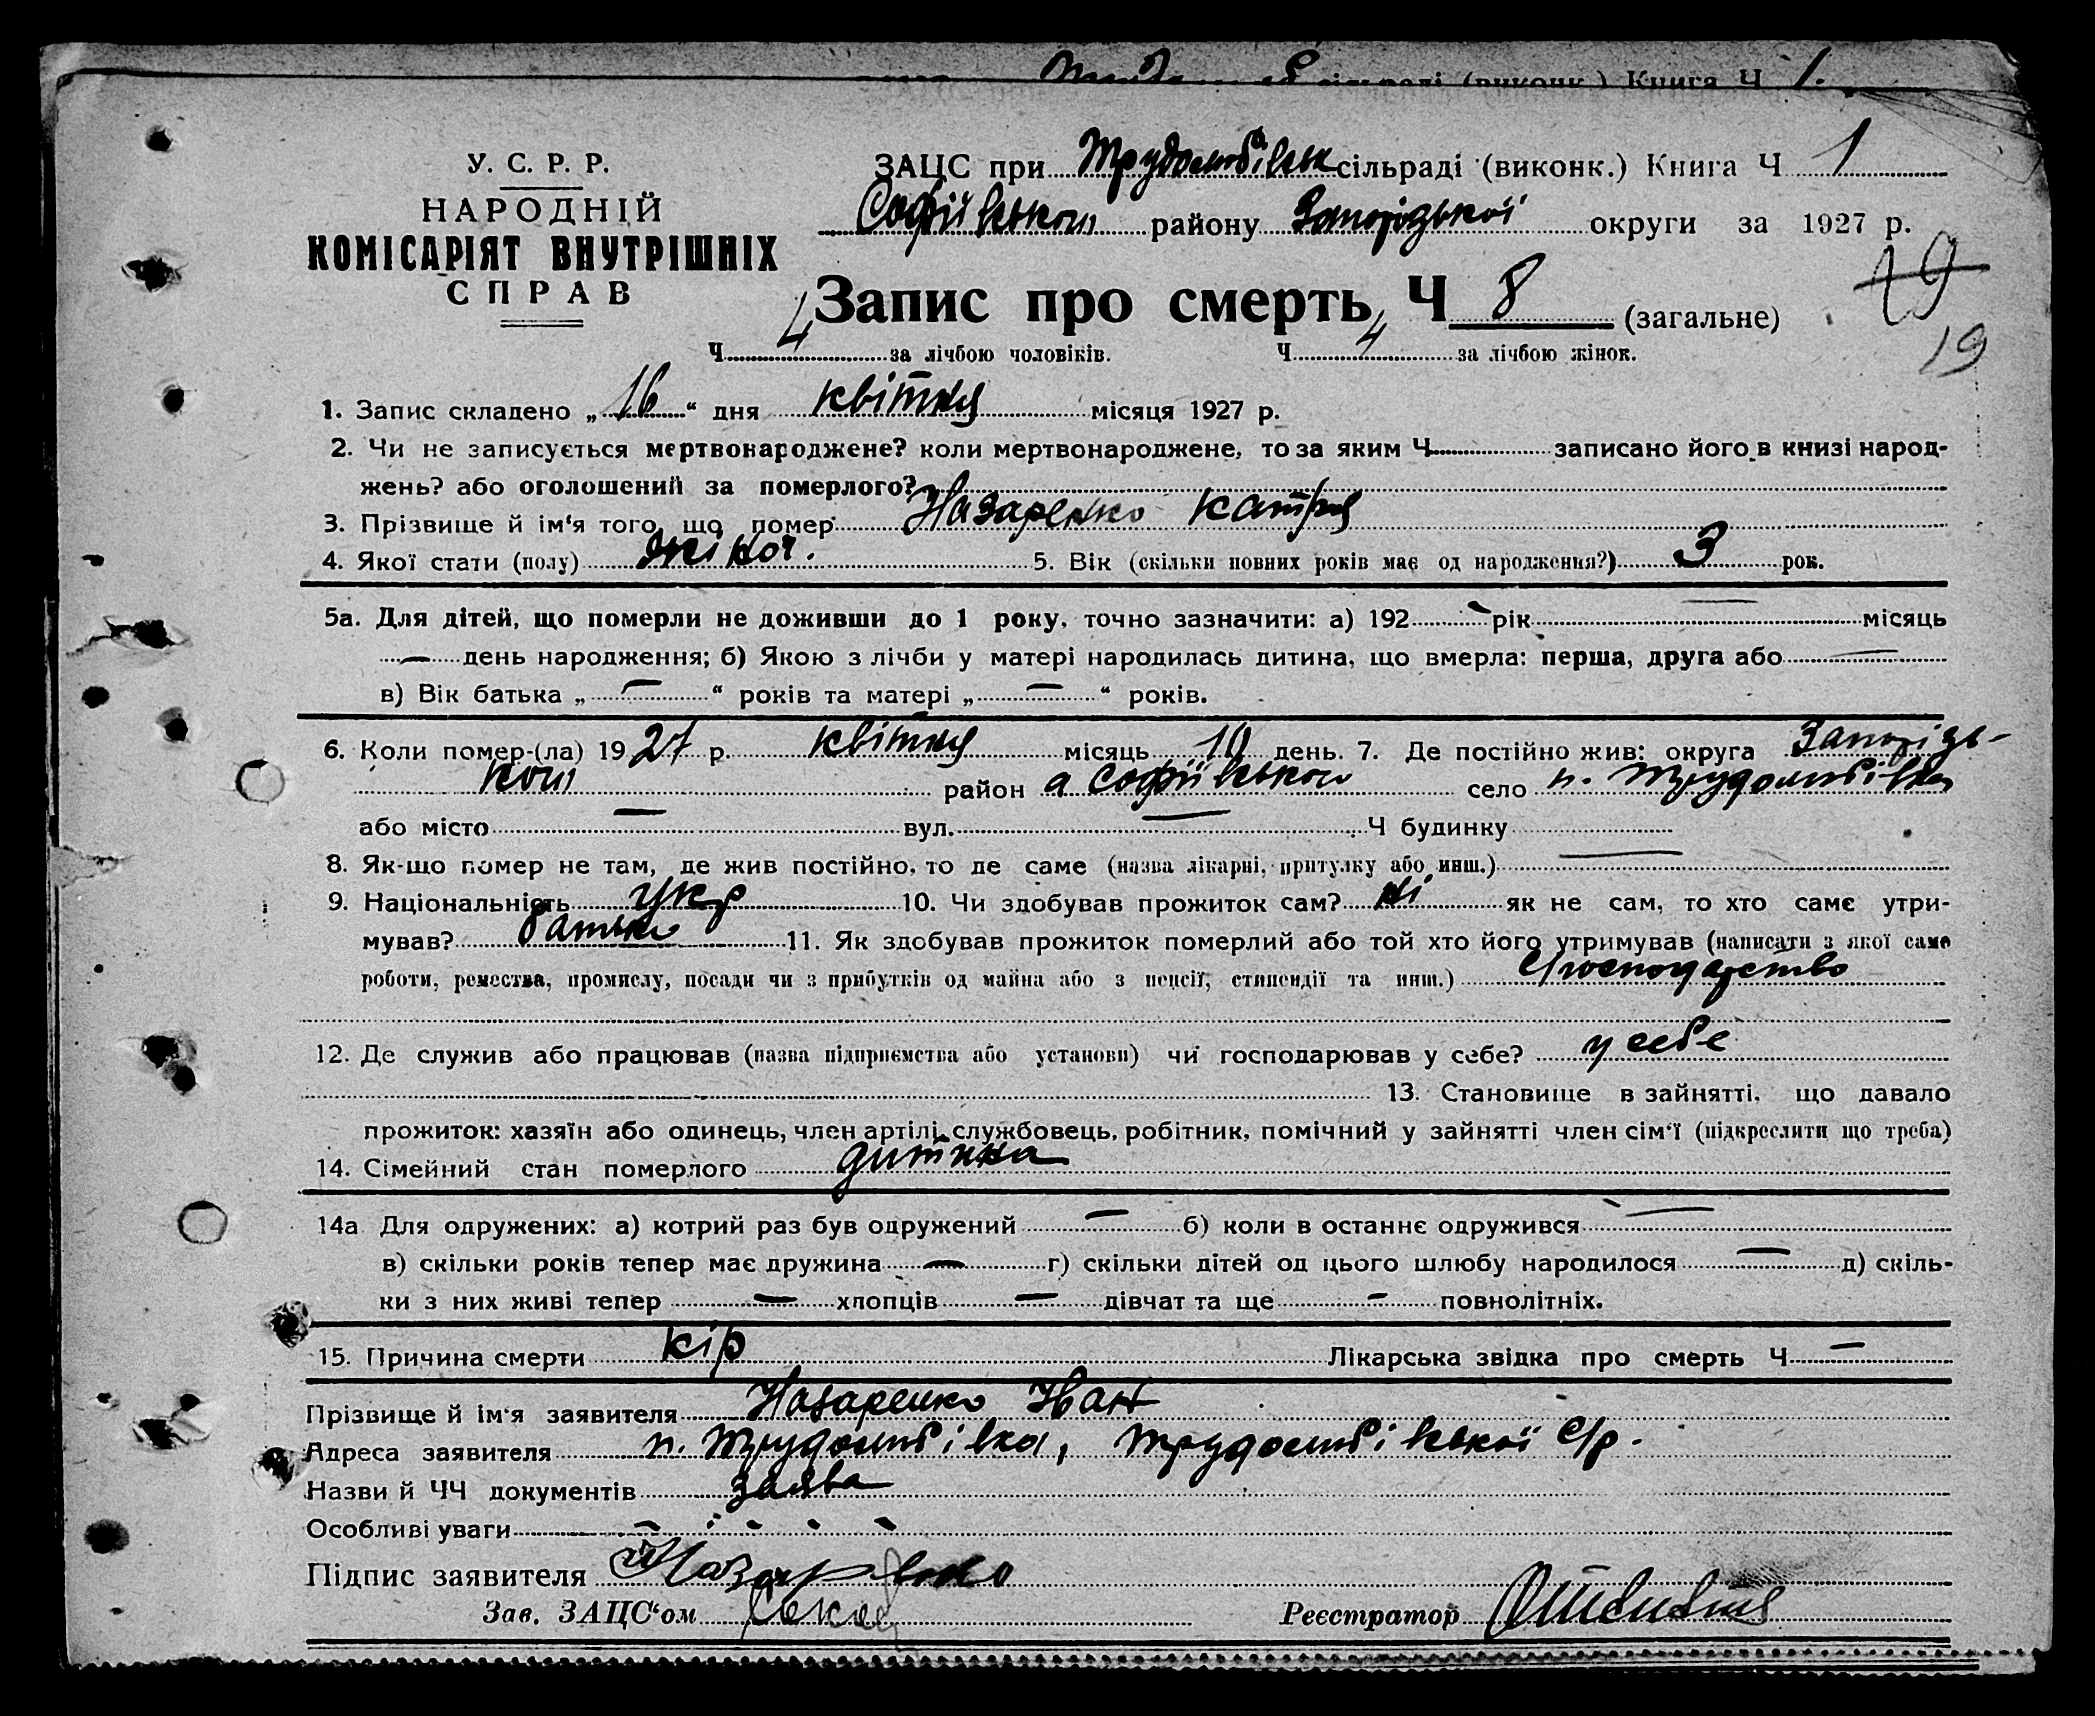 сільраді (виконк.) Книга Ч 1.
У. С. Р. Р.
НАРОДНІЙ
КОМІСАРІЯТ ВНУТРІШНІХ
СПРАВ
ЗАЦС при Трудолюбівськ сільраді (виконк.) Книга Ч 1
Софіївського району Запорізької округи за 1927 р.
19
Запис про смерть Ч 8 (загальне)
19
Ч 4 за лічбою чоловіків. Ч 4 за лічбою жінок.
1. Запис складено „ 16 “ дня квітня місяця 1927 р.
2. Чи не записується мертвонароджене? коли мертвонароджене, то за яким Ч записано його в книзі народ-
жень? або оголошений за померлого?
3. Прізвище й ім'я того, що помер Назаренко Катря
4. Якої стати (полу) жіноч. 5. Вік (скільки повних років має од народження?) 3 рок.
5а. Для дітей, що померли не доживши до 1 року, точно зазначити: а) 192 рік — місяць
— день народження; б) Якою з лічби у матері народилась дитина, що вмерла: перша, друга або —
в) Вік батька „ — “ років та матері „ — “ років.
6. Коли помер-(ла) 1927 р. квітня місяць 10 день. 7. Де постійно жив: округа Запорізь-
кої район а Софіївського село п. Трудолюбівка
або місто — вул. — Ч будинку
8. Як-що помер не там, де жив постійно, то де саме (назва лікарні, притулку або инш.) —
9. Національність укр 10. Чи здобував прожиток сам? ні як не сам, то хто саме утри-
мував? батько 11. Як здобував прожиток померлий або той хто його утримував (написати з якої саме
роботи, ремества, промислу, посади чи з прибутків од майна або з пенсії, стипендії та инш.) с/господарство
12. Де служив або працював (назва підприємства або установи) чи господарював у себе? у себе
13. Становище в зайнятті, що давало
прожиток: хазяїн або одинець, член артілі, службовець, робітник, помічний у зайнятті член сім'ї (підкреслити що треба)
14. Сімейний стан померлого дитина
14а Для одружених: а) котрий раз був одружений — б) коли в останнє одружився —
в) скільки років тепер має дружина — г) скільки дітей од цього шлюбу народилося — д) скіль-
ки з них живі тепер — хлопців — дівчат та ще — повнолітніх.
15. Причина смерти кір Лікарська звідка про смерть Ч —
Прізвище й ім'я заявителя Назаренко Іван
Адреса заявителя п. Трудолюбівка, Трудолюбівської с/р.
Назви й ЧЧ документів заява
Особливі уваги - - - - -
Підпис заявителя Назаренко
Зав. ЗАЦС‘ом Реєстратор